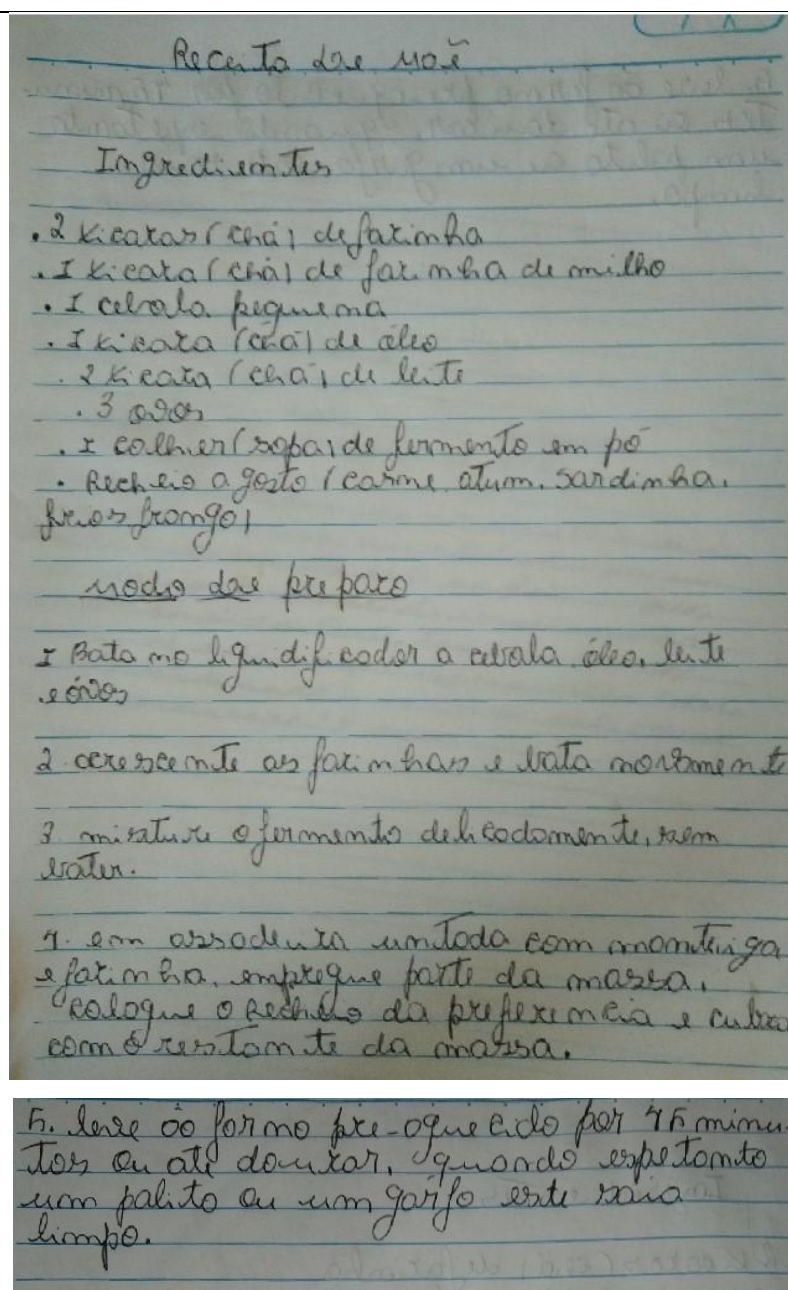 Receita dae moẽ
Ingredientes
. 2 xicaras (chá) de farinha
. I xicara (chá) de farinha de milho
. I cebola pequena
. I xicara (chá) de óleo
. 2 xicara (chá) de leite
. 3 ovos
. I colher (sopa) de fermento em pó
. Recheio a gosto (carne atum. sardinha.
frios frango)
modo dae preparo
I Bata no liguidificador a cebola óleo, leite
e óvos
2. acrescente as farinhas e bata novamente
3. misature o fermento delicadamente, sem
bater.
4. em assadeira untada com manteiga
e farinha. empregue parte da massa.
cologue o Recheio da preferencia e cubra
com o restante da massa.
5. leve ao forno pre-oquecido por 45 minu
tos ou até dourar, quando espetamto
um palito ou um garfo este saia
limpo.